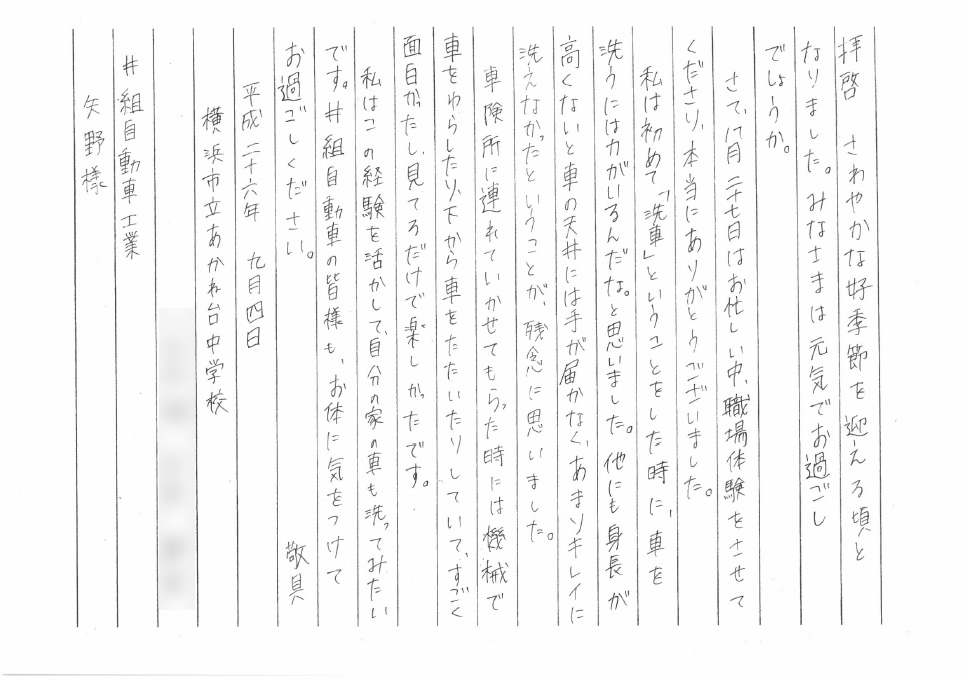 拝啓　さわやかな好季節を迎える頃と
なりました。みなさまは元気でお過ごし
でしょうか。
さて、八月二十七日はお忙しい中、職場体験をさせて
くださり、本当にありがとうございました。
私は初めて「洗車」ということをした時に、車を
洗うには力がいるんだな。と思いました。他にも身長が
高くないと車の天井には手が届かなく、あまりキレイに
洗えなかったということが、残念に思いました。
車険所に連れていかせてもらった時には機械で
車をゆらしたり、下から車をたたいたりしていて、すごく
面白かったし、見てるだけで楽しかったです。
私はこの経験を活かして、自分の家の車も洗ってみたい
です。井組自動車の皆様も、お体に気をつけて
お過ごしください。　敬具
平成二十六年　九月四日
横浜市立あかね台中学校
井組自動車工業
矢野様